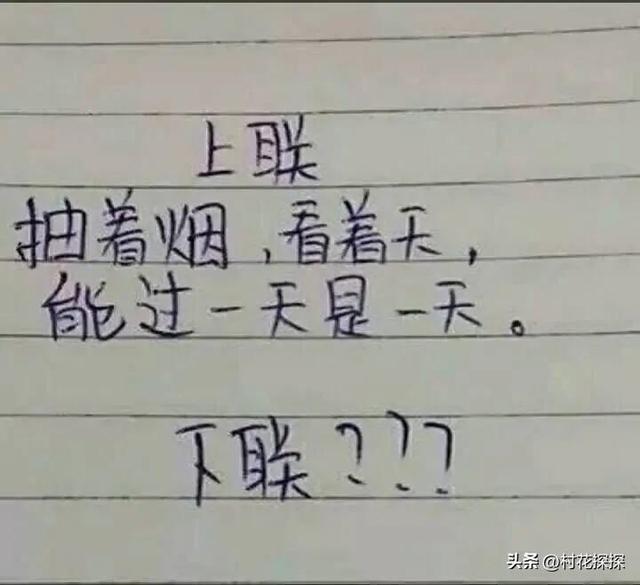 上联
抽着烟,看着天,
能过一天是一天。
下联???
头条 @村花探探